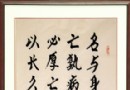 名与身
亡孰病
必厚亡
以长久